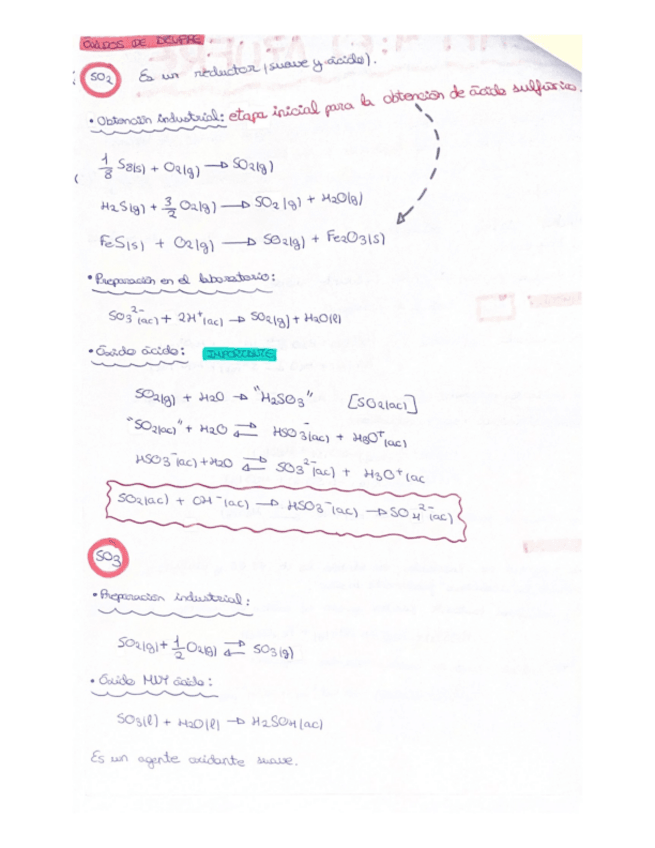 ÓXIDOS DE AZUFRE
SO2 Es un reductor (suave y ácido).
• Obtención industrial: etapa inicial para la obtención de ácido sulfúrico.
1/8 S8(s) + O2(g) → SO2(g)
H2S(g) + 3/2 O2(g) → SO2(g) + H2O(g)
FeS(s) + O2(g) → SO2(g) + Fe2O3(s)
• Preparación en el laboratorio:
SO3²⁻(ac) + 2H⁺(ac) → SO2(g) + H2O(l)
• Óxido ácido: IMPORTANTE
SO2(g) + H2O → "H2SO3" [SO2(ac)]
"SO2(ac)" + H2O ⇄ HSO3⁻(ac) + H3O⁺(ac)
HSO3⁻(ac) + H2O ⇄ SO3²⁻(ac) + H3O⁺(ac
SO2(ac) + OH⁻(ac) → HSO3⁻(ac) → SO4²⁻(ac)
SO3
• Preparación industrial:
SO2(g) + 1/2 O2(g) ⇄ SO3(g)
• Óxido MUY ácido:
SO3(l) + H2O(l) → H2SO4(ac)
Es un agente oxidante suave.